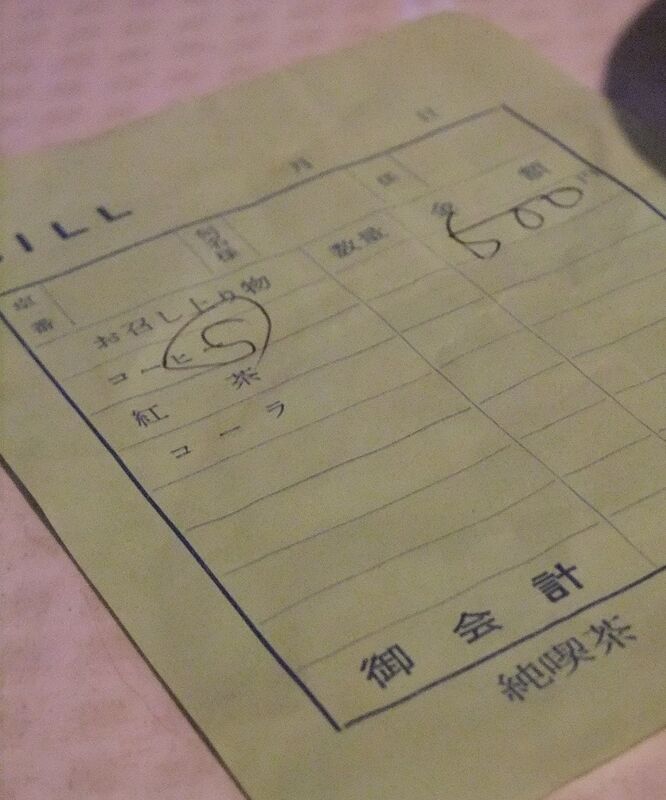 BILL
月 日
卓番 御名様 係
お召し上り物 数量 金額
コーヒー S 500円
紅茶
コーラ
御会計
純喫茶